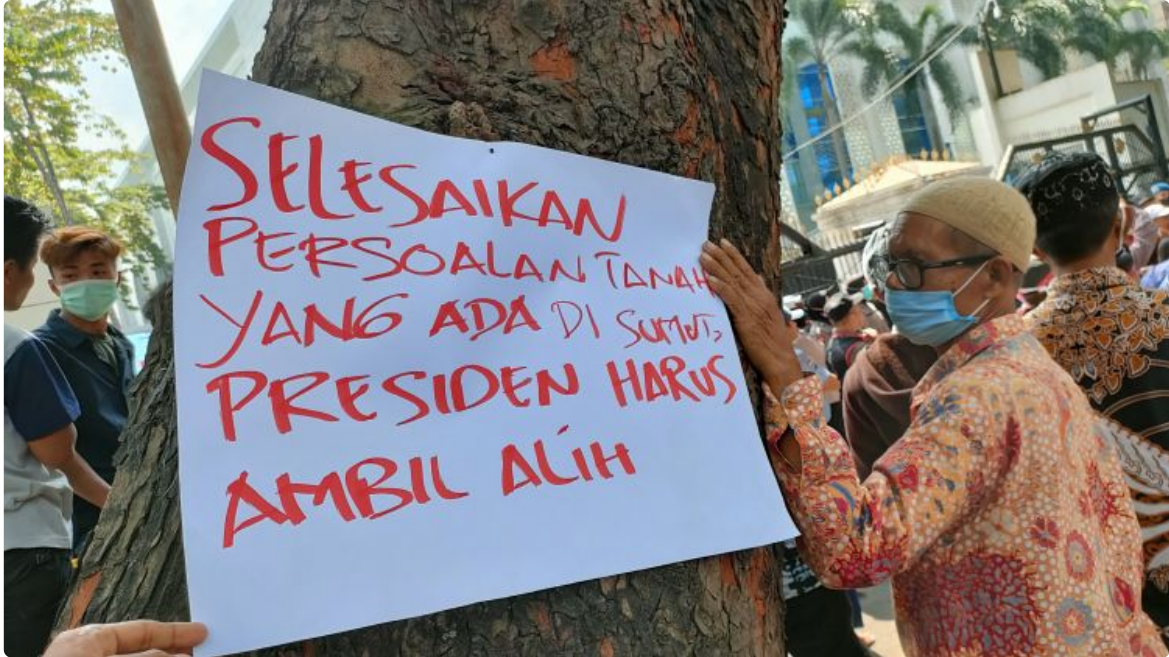 SELESAIKAN
PERSOALAN TANAH
YANG ADA DI SUMUT,
PRESIDEN HARUS
AMBIL ALIH